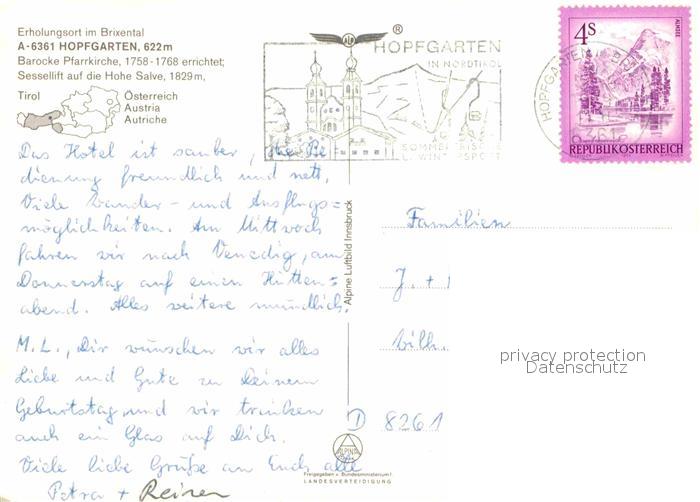 Erholungsort im Brixental
A-6361 HOPFGARTEN, 622 m
Barocke Pfarrkirche, 1758-1768 errichtet;
Sessellift auf die Hohe Salve, 1829 m,
Tirol
Österreich
Austria
Autriche
ALP ®
HOPFGARTEN
IN NORDTIROL
SOMMERFRISCHE
U. WINTERSPORT
HOPFGARTEN
4S
ALMSEE
REPUBLIK ÖSTERREICH
Das Hotel ist sauber, die Be-
dienung freundlich und nett.
Viele Wander- und Ausflugs=
möglichkeiten. Am Mittwoch
fahren wir nach Venedig, am
Donnerstag auf einen Hütten=
abend. Alles weitere mündlich.
M.L., Dir wünschen wir alles
Liebe und Gute zu Deinem
Geburtstag, und wir trinken
auch ein Glas auf Dich.
Viele liebe Grüße an Euch alle
Petra + Reiner
Alpine Luftbild Innsbruck
Familien
J. + I
Willi.
privacy protection
Datenschutz
D 8261
ALPINE
Freigegeben v. Bundesministerium f.
LANDESVERTEIDIGUNG